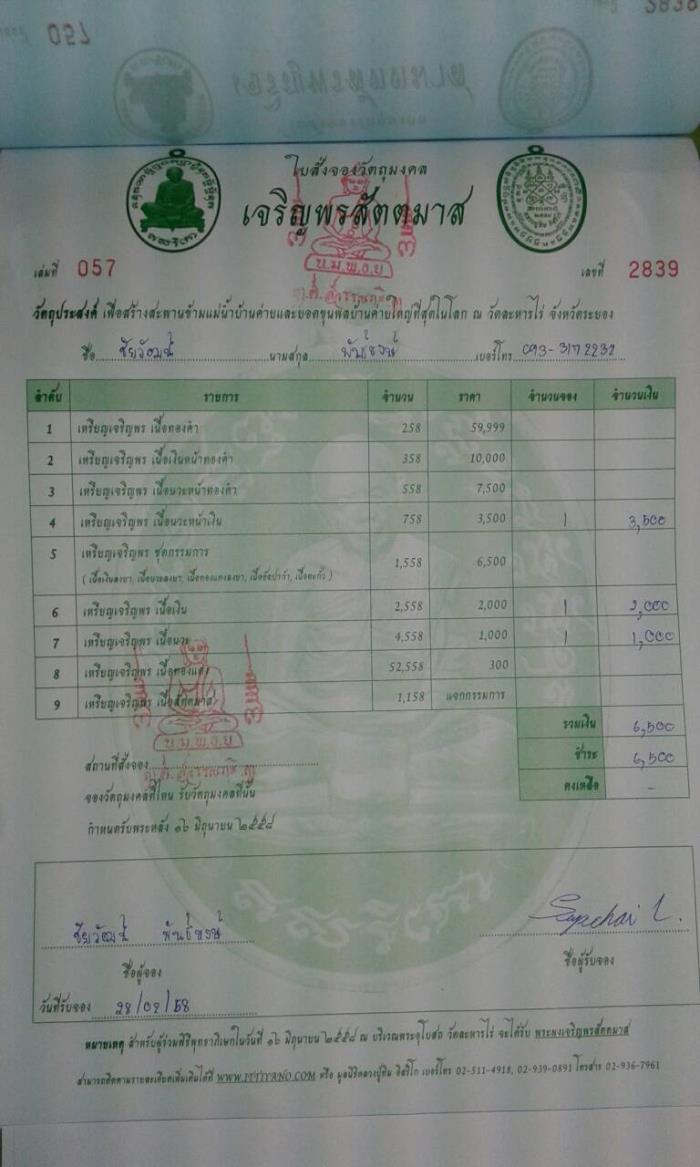 057
2838
ใบสั่งจองวัตถุมงคล
เจริญพรสัตตมาส
เล่มที่ 057
เลขที่ 2839
น.ม.พ.อ.ย
วัตถุประสงค์ เพื่อสร้างสะพานข้ามแม่น้ำบ้านค่ายและยอดขุนพลบ้านค่ายใหญ่ที่สุดในโลก ณ วัดละหารไร่ จังหวัดระยอง
ชื่อ ชัยวัฒน์ นามสกุล พันธ์ เบอร์โทร 093-3172232
ลำดับ รายการ จำนวน ราคา จำนวนจอง จำนวนเงิน
1 เหรียญเจริญพร เนื้อทองคำ 258 59,999
2 เหรียญเจริญพร เนื้อเงินหน้าทองคำ 358 10,000
3 เหรียญเจริญพร เนื้อนวะหน้าทองคำ 558 7,500
4 เหรียญเจริญพร เนื้อนวะหน้าเงิน 758 3,500 1 3,500
5 เหรียญเจริญพร ชุดกรรมการ 1,558 6,500
( เนื้อเงินลงยา, เนื้อนวะลงยา, เนื้อทองแดงลงยา, เนื้ออัลปาก้า, เนื้อตะกั่ว )
6 เหรียญเจริญพร เนื้อเงิน 2,558 2,000 1 2,000
7 เหรียญเจริญพร เนื้อนวะ 4,558 1,000 1 1,000
8 เหรียญเจริญพร เนื้อทองแดง 52,558 300
9 เหรียญเจริญพร เนื้อสัตตมาส 1,158 แจกกรรมการ
รวมเงิน 6,500
ชำระ 6,500
คงเหลือ -
น.ม.พ.อ.ย
สถานที่สั่งจอง
จองวัตถุมงคลที่ไหน รับวัตถุมงคลที่นั้น
กำหนดรับพระหลัง ๑๖ มิถุนายน ๒๕๕๘
ชัยวัฒน์
ชื่อผู้จอง
ชื่อผู้รับจอง
วันที่รับจอง 28/02/58
หมายเหตุ สำหรับผู้ร่วมพิธีพุทธาภิเษกในวันที่ ๑๖ มิถุนายน ๒๕๕๘ ณ บริเวณพระอุโบสถ วัดละหารไร่ จะได้รับ พระผงเจริญพรสัตตมาส
สามารถติดตามรายละเอียดเพิ่มเติมได้ที่ WWW.PITIYANO.COM หรือ มูลนิธิหลวงปู่ทิม อิสริโก เบอร์โทร 02-511-4918, 02-939-0891 โทรสาร 02-936-7961